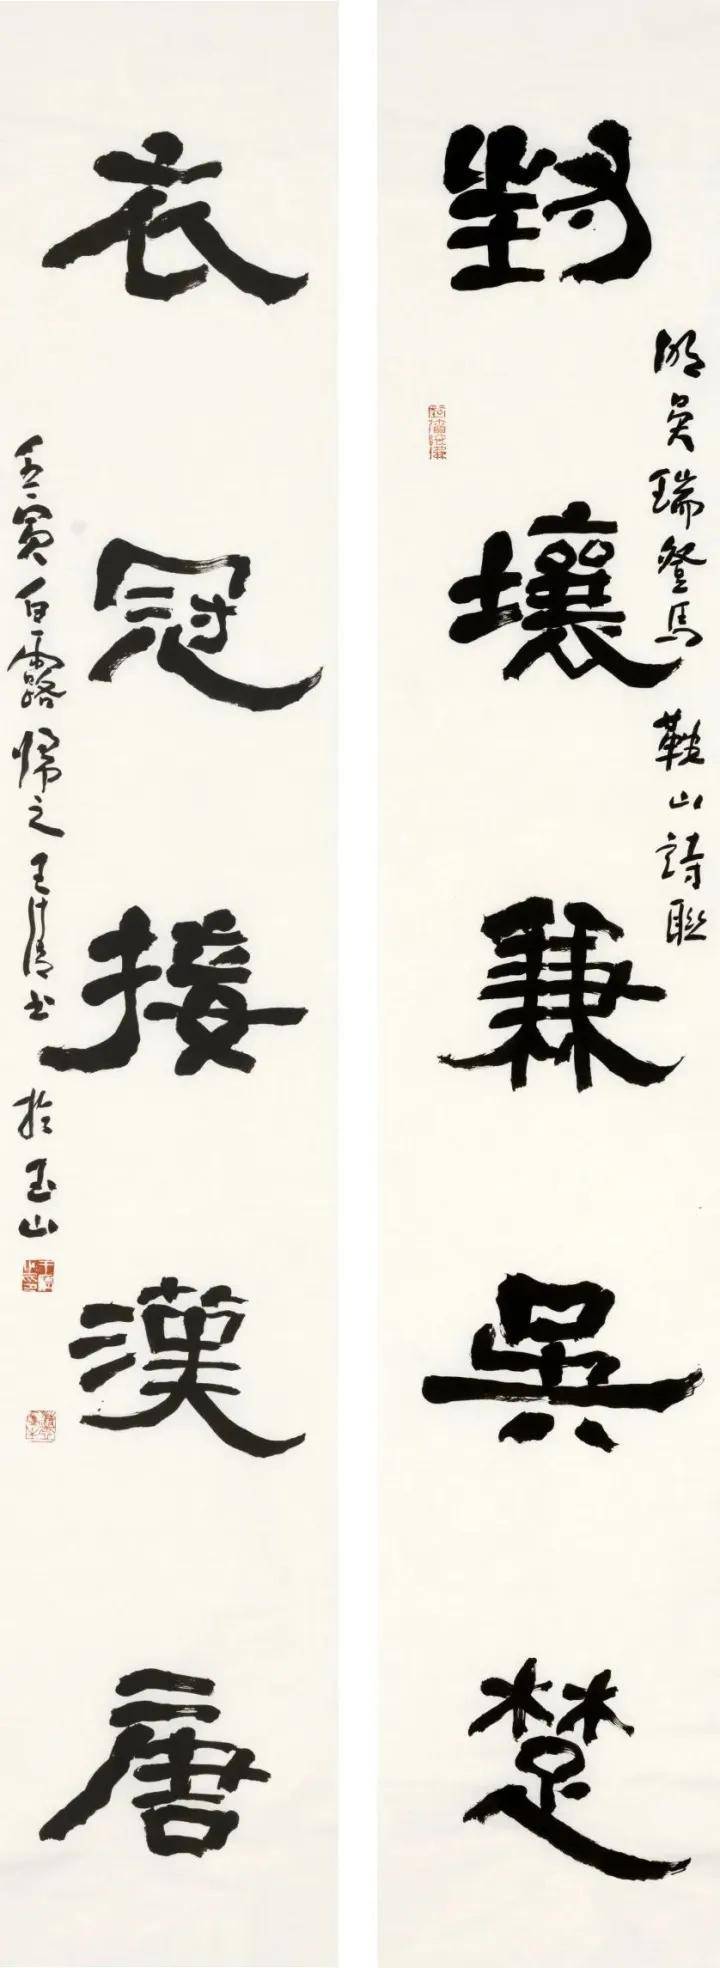 封壤兼吳楚
明吳瑞登馬鞍山詩聯
衣冠接漢唐
壬寅白露歸之王清书於玉山